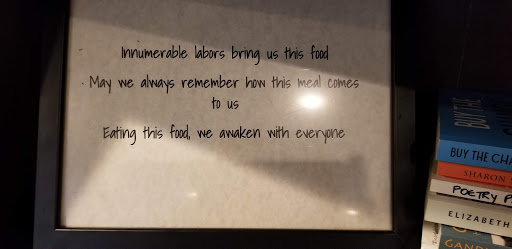 Innumerable labors bring us this food
May we always remember how this meal comes
to us
Eating this food, we awaken with everyone
BUY THE
BUY THE CHA
SHARON
POETRY P
ELIZABETH